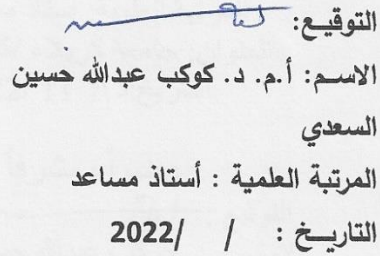 التوقيع:
الاسم: أ.م. د. كوكب عبدالله حسين
السعدي
المرتبة العلمية : أستاذ مساعد
التاريخ : / /2022